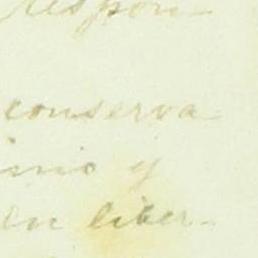 respon
conserva
inio y
en liber-